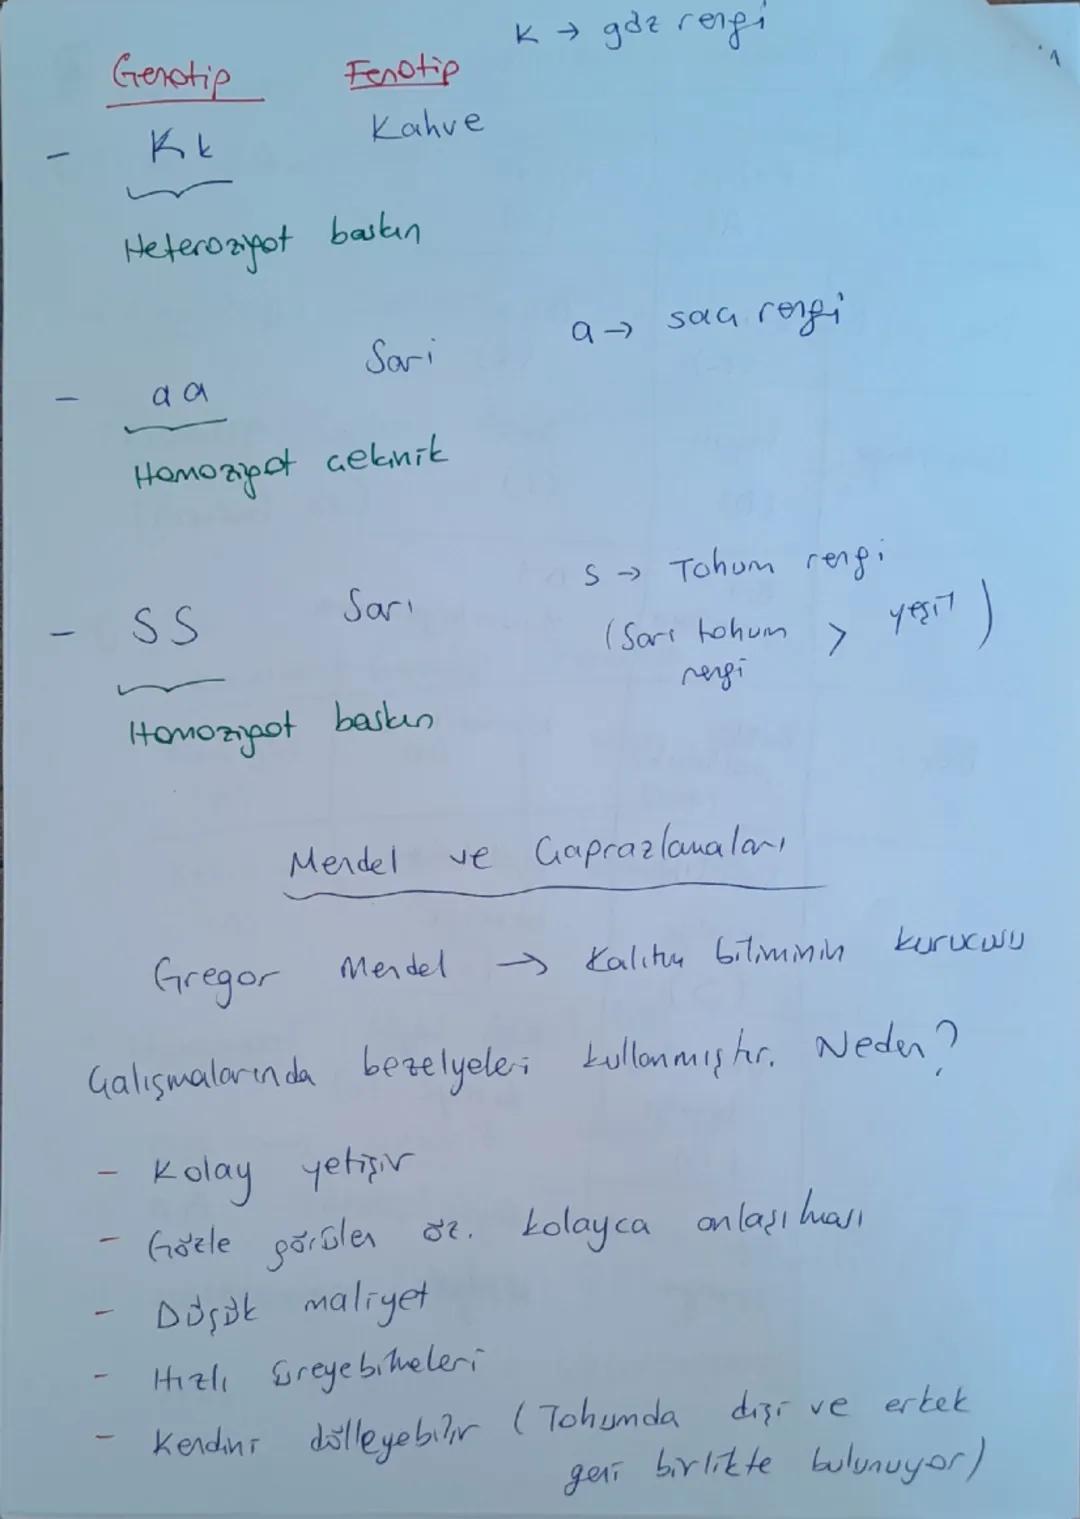 K → göz rengi
Genotip Fenotip
1
- Kk Kahve
Heterozigot baskın
a → saç rengi
- aa Sarı
Homozigot çekinik
s → Tohum rengi
- SS Sarı
(Sarı tohum > yeşil)
rengi
Homozigot baskın
Mendel ve Çaprazlamaları
Gregor Mendel → Kalıtım biliminin kurucusu
Çalışmalarında bezelyeleri kullanmıştır. Neden?
- Kolay yetişir
- Gözle görülen öz. kolayca anlaşılması
- Düşük maliyet
- Hızlı üreyebilmeleri
- Kendini dölleyebilir (Tohumda dişi ve erkek
geni birlikte bulunuyor)